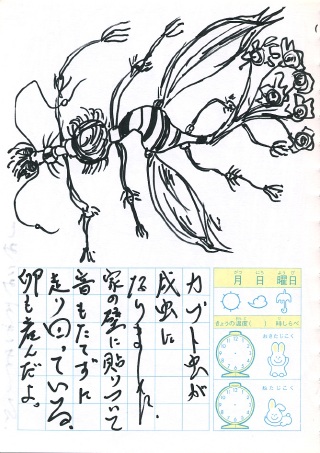 カブト虫が
成虫に
なりました。
家の壁に貼りついて
音もたてずに
走り回っている。
卵も産んだよ。
月 日 曜日
きょうの温度( ) 時しらべ
おきたじこく
ねたじこく